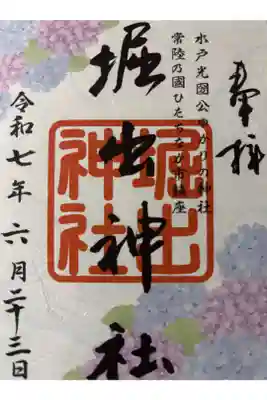 奉拝
水戸光圀公ゆかりの神社
常陸乃國ひたちなか市鎮座
堀出神社
堀出神社
令和七年六月二十三日